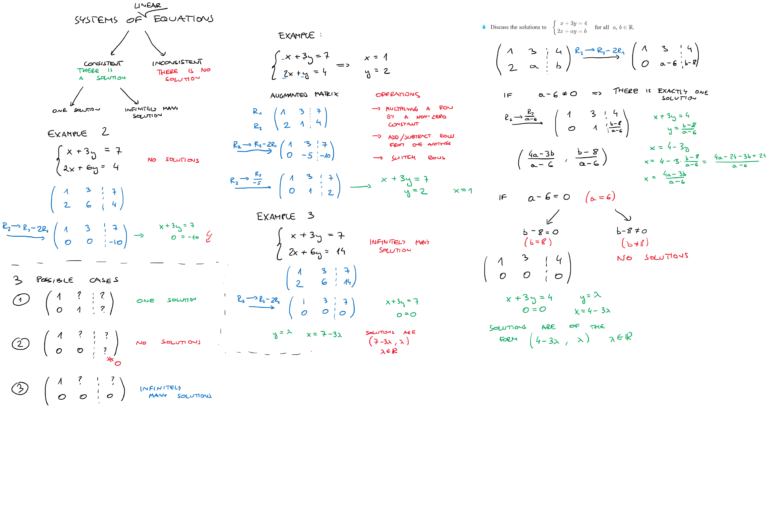 LINEAR
SYSTEMS OF EQUATIONS
CONSISTENT
THERE IS
A SOLUTION
INCONSISTENT
THERE IS NO
SOLUTION
ONE SOLUTION
INFINITELY MANY
SOLUTION
EXAMPLE 2
x + 3y = 7
2x + 6y = 4
NO SOLUTIONS
1 3 7
2 6 4
R₂ → R₂ - 2R₁
1 3 7
0 0 -10
x + 3y = 7
0 = -10
3 POSSIBLE CASES
① 1 ? ?
0 1 ?
ONE SOLUTION
② 1 ? ?
0 0 ?
≠ 0
NO SOLUTIONS
③ 1 ? ?
0 0 0
INFINITELY
MANY SOLUTIONS
EXAMPLE :
x + 3y = 7
2x + y = 4
=> x = 1
y = 2
AUGMENTED MATRIX
R₁ 1 3 7
R₂ 2 1 4
R₂ → R₂ - 2R₁
1 3 7
0 -5 -10
R₂ → R₂/-5
1 3 7
0 1 2
x + 3y = 7
y = 2 x = 1
OPERATIONS
→ MULTIPLYING A ROW
BY A NON-ZERO
CONSTANT
→ ADD/SUBTRACT ROWS
FROM ONE ANOTHER
→ SWITCH ROWS
EXAMPLE 3
x + 3y = 7
2x + 6y = 14
INFINITELY MANY
SOLUTION
1 3 7
2 6 14
R₂ → R₂ - 2R₁
1 3 7
0 0 0
x + 3y = 7
0 = 0
y = λ x = 7 - 3λ
SOLUTIONS ARE
(7 - 3λ, λ)
λ ∈ ℝ
Discuss the solutions to { x + 3y = 4
2x + ay = b for all a, b ∈ ℝ.
1 3 4
2 a b
R₂ → R₂ - 2R₁
1 3 4
0 a-6 b-8
IF a - 6 ≠ 0 => THERE IS EXACTLY ONE
SOLUTION
R₂ → R₂/a-6
1 3 4
0 1 b-8/a-6
x + 3y = 4
y = b-8/a-6
x = 4 - 3y
x = 4 - 3 · b-8/a-6 = 4a-24-3b+24/a-6
x = 4a-3b/a-6
( 4a-3b/a-6 , b-8/a-6 )
IF a - 6 = 0 (a = 6)
b - 8 = 0
(b = 8)
b - 8 ≠ 0
(b ≠ 8)
NO SOLUTIONS
1 3 4
0 0 0
x + 3y = 4
0 = 0
y = λ
x = 4 - 3λ
SOLUTIONS ARE OF THE
FORM (4 - 3λ , λ) λ ∈ ℝ